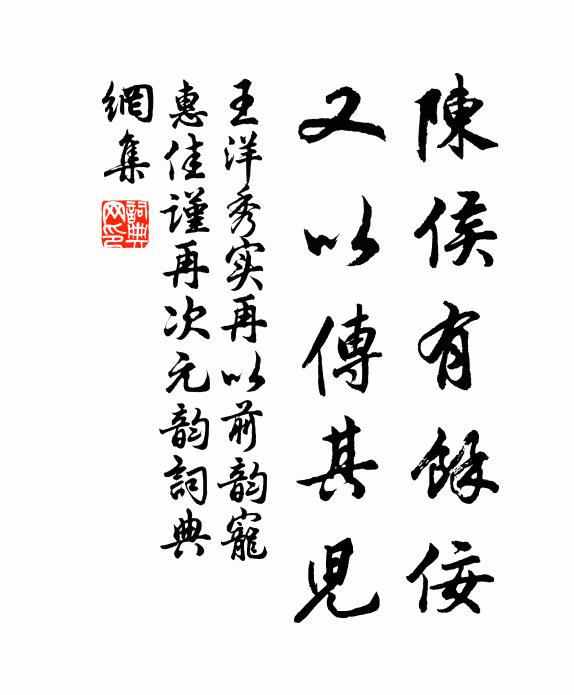 陳侯有餘佞
又以傳其児
王洋秀实再以前韵寵
惠佳谨再次元韵詞典
網集
詞典网印